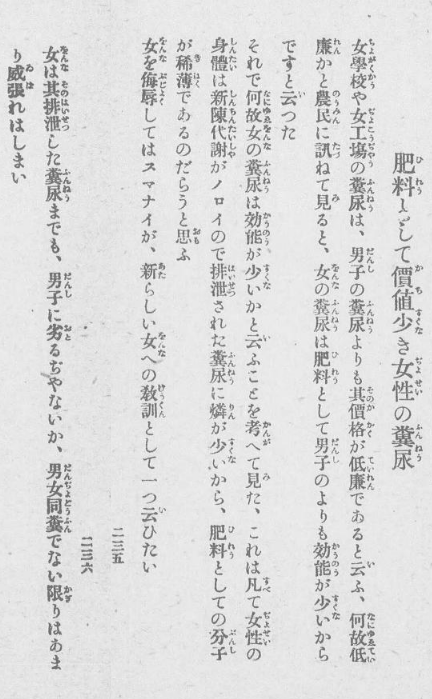 肥料として價値少き女性の糞尿
女學校や女工塲の糞尿は、男子の糞尿よりも其價格が低廉であると云ふ、何故低
廉かと農民に訊ねて見ると、女の糞尿は肥料として男子のよりも効能が少いから
ですと云つた
それで何故女の糞尿は効能が少いかと云ふことを考へて見た、これは凡て女性の
身體は新陳代謝がノロイので排泄された糞尿に燐が少いから、肥料としての分子
が稀薄であるのだらうと思ふ
女を侮辱してはスマナイが、新らしい女への敎訓として一つ云ひたい
二三五
二三六
女は其排泄した糞尿までも、男子に劣るぢやないか、男女同糞でない限りはあま
り威張れはしまい